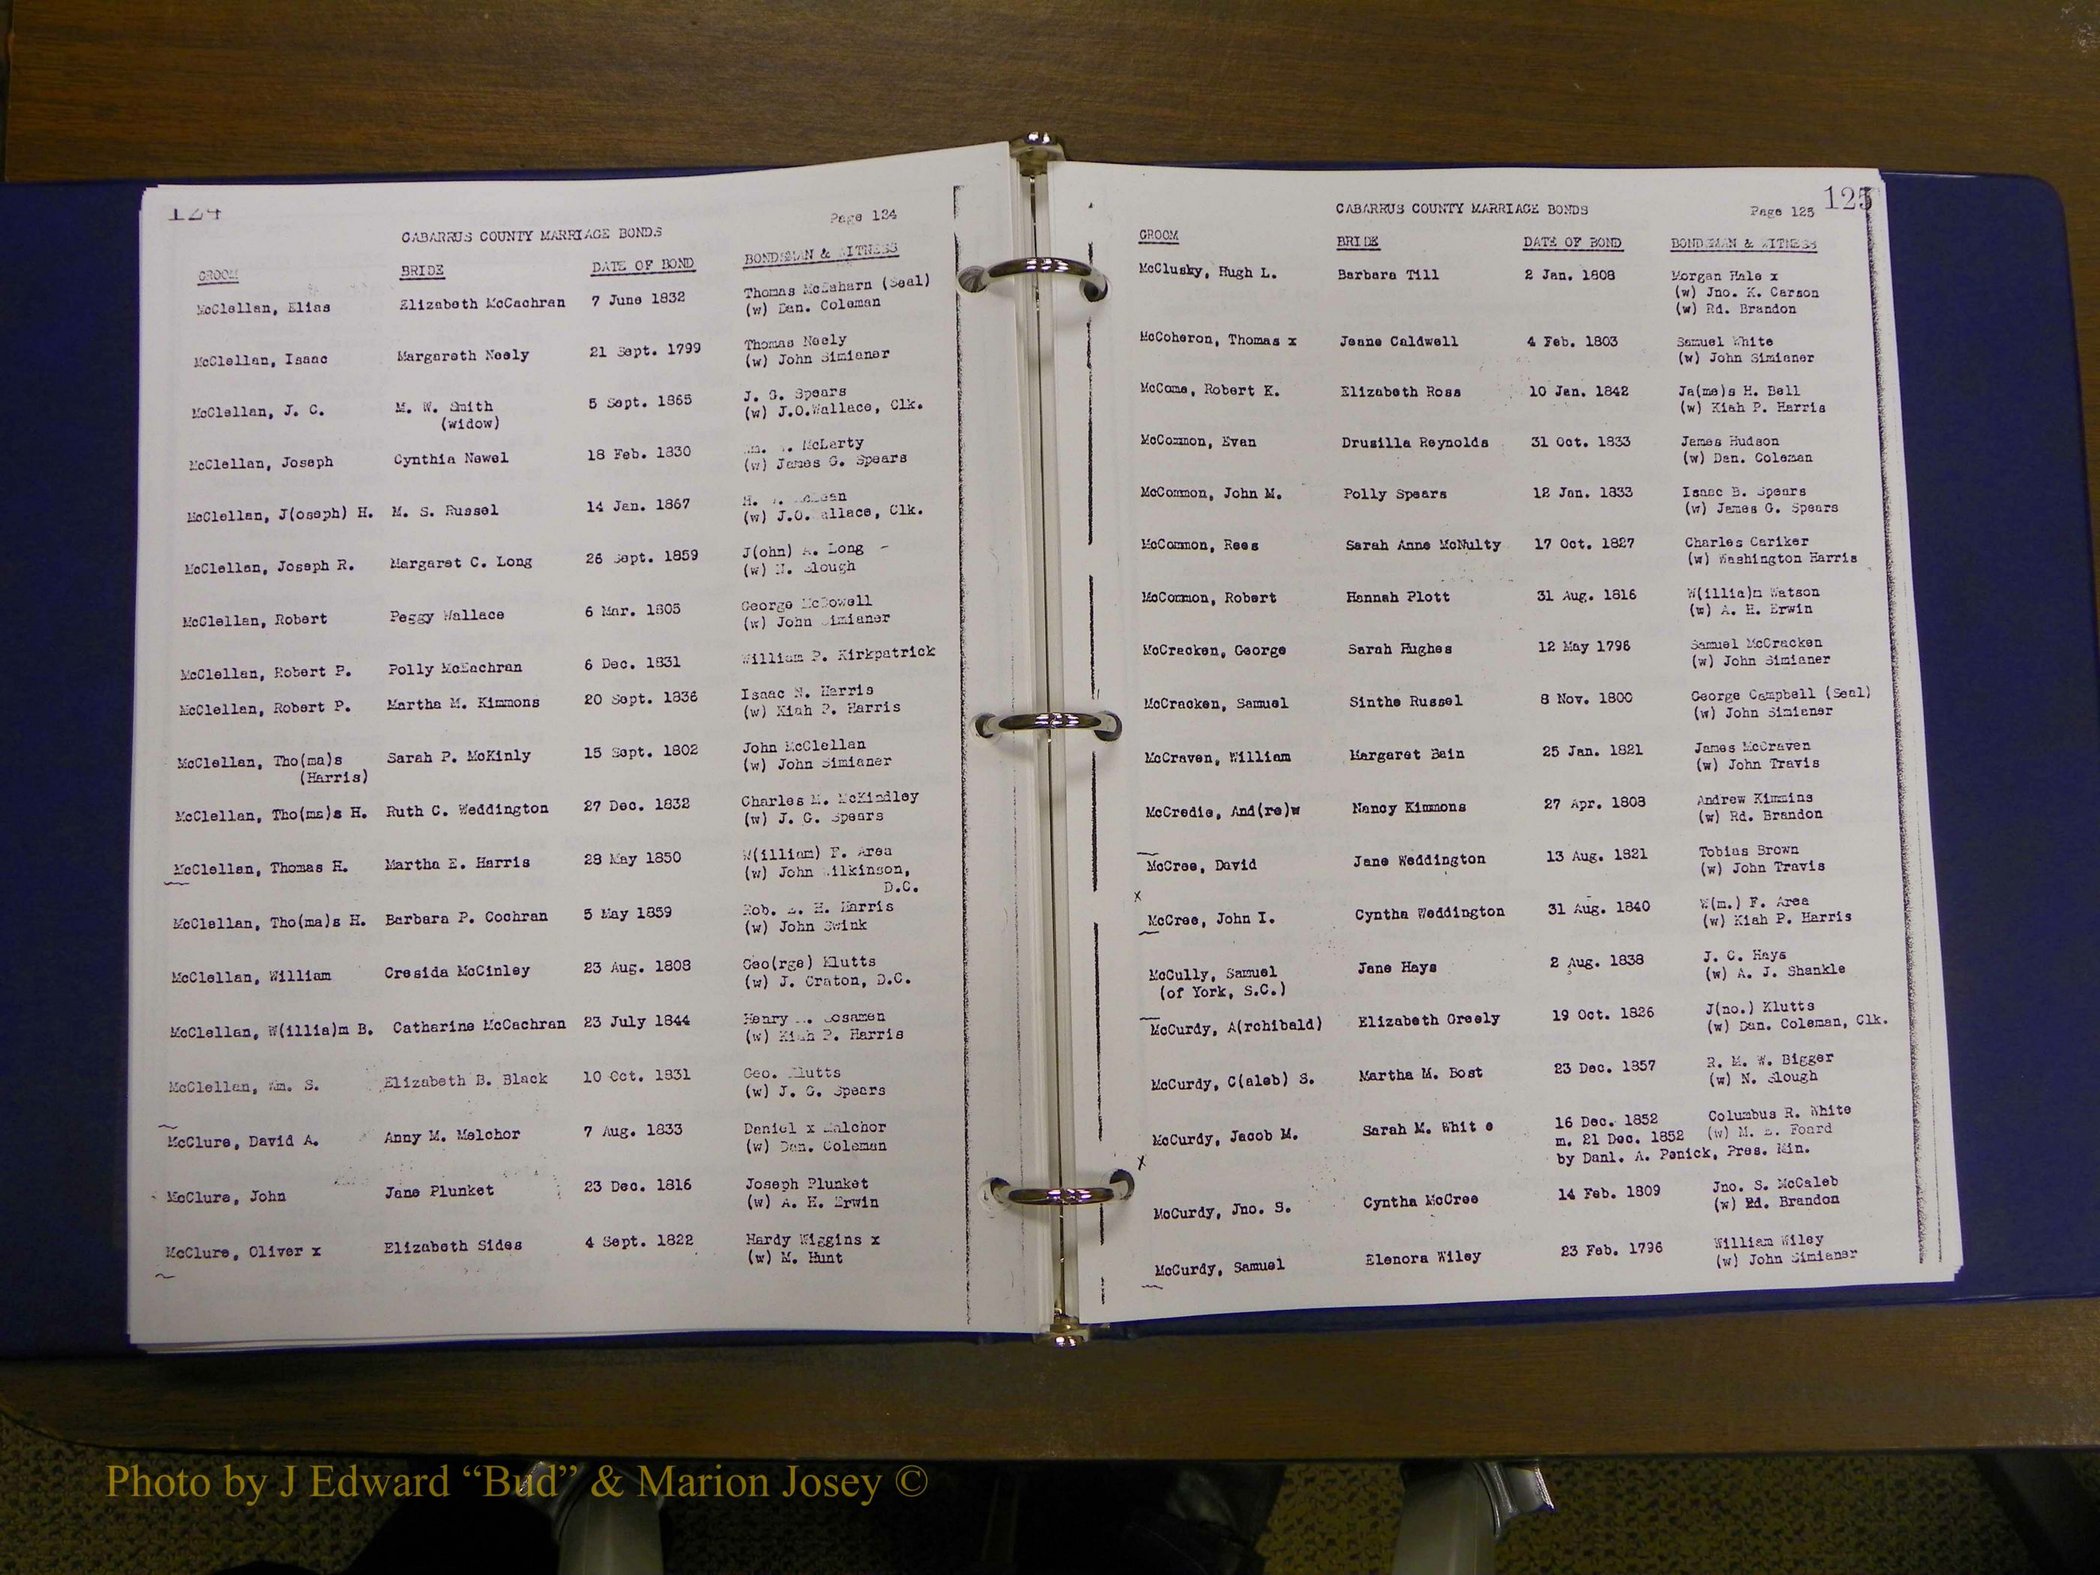 124
Page 124
CABARRUS COUNTY MARRIAGE BONDS
GROOM BRIDE DATE OF BOND BONDSMAN & WITNESS
McClellan, Elias Elizabeth McCachran 7 June 1832 Thomas McEaharn (Seal)
(w) Dan. Coleman
McClellan, Isaac Margareth Neely 21 Sept. 1799 Thomas Neely
(w) John Simianer
McClellan, J. C. M. W. Smith 5 Sept. 1865 J. G. Spears
(widow) (w) J.O.Wallace, Clk.
McClellan, Joseph Cynthia Newel 18 Feb. 1830 McLarty
(w) James G. Spears
McClellan, J(oseph) H. M. S. Russel 14 Jan. 1867 H.
(w) J.O.Wallace, Clk.
McClellan, Joseph R. Margaret C. Long 26 Sept. 1859 J(ohn) A. Long
(w) N. Slough
McClellan, Robert Peggy Wallace 6 Mar. 1805 George McDowell
(w) John Simianer
McClellan, Robert P. Polly McEachran 6 Dec. 1831 William P. Kirkpatrick
McClellan, Robert P. Martha M. Kimmons 20 Sept. 1836 Isaac N. Harris
(w) Kiah P. Harris
McClellan, Tho(ma)s Sarah P. McKinly 15 Sept. 1802 John McClellan
(Harris) (w) John Simianer
McClellan, Tho(ma)s H. Ruth C. Weddington 27 Dec. 1832 Charles M. McKindley
(w) J. G. Spears
McClellan, Thomas H. Martha E. Harris 28 May 1850 W(illiam) F. Area
(w) John Wilkinson,
D.C.
McClellan, Tho(ma)s H. Barbara P. Cochran 5 May 1859 Rob. H. Harris
(w) John Swink
McClellan, William Cresida McCinley 23 Aug. 1808 Geo(rge) Klutts
(w) J. Craton, D.C.
McClellan, W(illia)m B. Catharine McCachran 23 July 1844 Henry
(w) Kiah P. Harris
McClellan, Wm. S. Elizabeth B. Black 10 Oct. 1831 Geo. Klutts
(w) J. G. Spears
McClure, David A. Anny M. Melchor 7 Aug. 1833 Daniel x Malchor
(w) Dan. Coleman
McClure, John Jane Plunket 23 Dec. 1816 Joseph Plunket
(w) A. H. Erwin
McClure, Oliver x Elizabeth Sides 4 Sept. 1822 Hardy Wiggins x
(w) M. Hunt
125
CABARRUS COUNTY MARRIAGE BONDS Page 125
GROOM BRIDE DATE OF BOND BONDSMAN & WITNESS
McClusky, Hugh L. Barbara Till 2 Jan. 1808 Morgan Hale x
(w) Jno. K. Carson
(w) Rd. Brandon
McCoheron, Thomas x Jeane Caldwell 4 Feb. 1803 Samuel White
(w) John Simianer
McCome, Robert K. Elizabeth Ross 10 Jan. 1842 Ja(me)s H. Bell
(w) Kiah P. Harris
McCommon, Evan Drusilla Reynolds 31 Oct. 1833 James Hudson
(w) Dan. Coleman
McCommon, John M. Polly Spears 12 Jan. 1833 Isaac B. Spears
(w) James G. Spears
McCommon, Rees Sarah Anne McNulty 17 Oct. 1827 Charles Cariker
(w) Washington Harris
McCommon, Robert Hannah Plott 31 Aug. 1816 W(illia)m Watson
(w) A. H. Erwin
McCracken, George Sarah Hughes 12 May 1796 Samuel McCracken
(w) John Simianer
McCracken, Samuel Sinthe Russel 8 Nov. 1800 George Campbell (Seal)
(w) John Simianer
McCraven, William Margaret Bain 25 Jan. 1821 James McCraven
(w) John Travis
McCredie, And(re)w Nancy Kimmons 27 Apr. 1808 Andrew Kimmins
(w) Rd. Brandon
McCree, David Jane Weddington 13 Aug. 1821 Tobias Brown
(w) John Travis
x
McCree, John I. Cyntha Weddington 31 Aug. 1840 W(m.) F. Area
(w) Kiah P. Harris
McCully, Samuel Jane Hays 2 Aug. 1838 J. C. Hays
(of York, S.C.) (w) A. J. Shankle
McCurdy, A(rchibald) Elizabeth Greely 19 Oct. 1826 J(no.) Klutts
(w) Dan. Coleman, Clk.
McCurdy, C(aleb) S. Martha M. Bost 23 Dec. 1857 R. M. W. Bigger
(w) N. Slough
McCurdy, Jacob M. Sarah M. White 16 Dec. 1852 Columbus R. White
m. 21 Dec. 1852 (w) M. Foard
by Danl. A. Penick, Pres. Min.
x
McCurdy, Jno. S. Cyntha McCree 14 Feb. 1809 Jno. S. McCaleb
(w) Rd. Brandon
McCurdy, Samuel Elenora Wiley 23 Feb. 1796 William Wiley
(w) John Simianer
Photo by J Edward “Bud” & Marion Josey ©